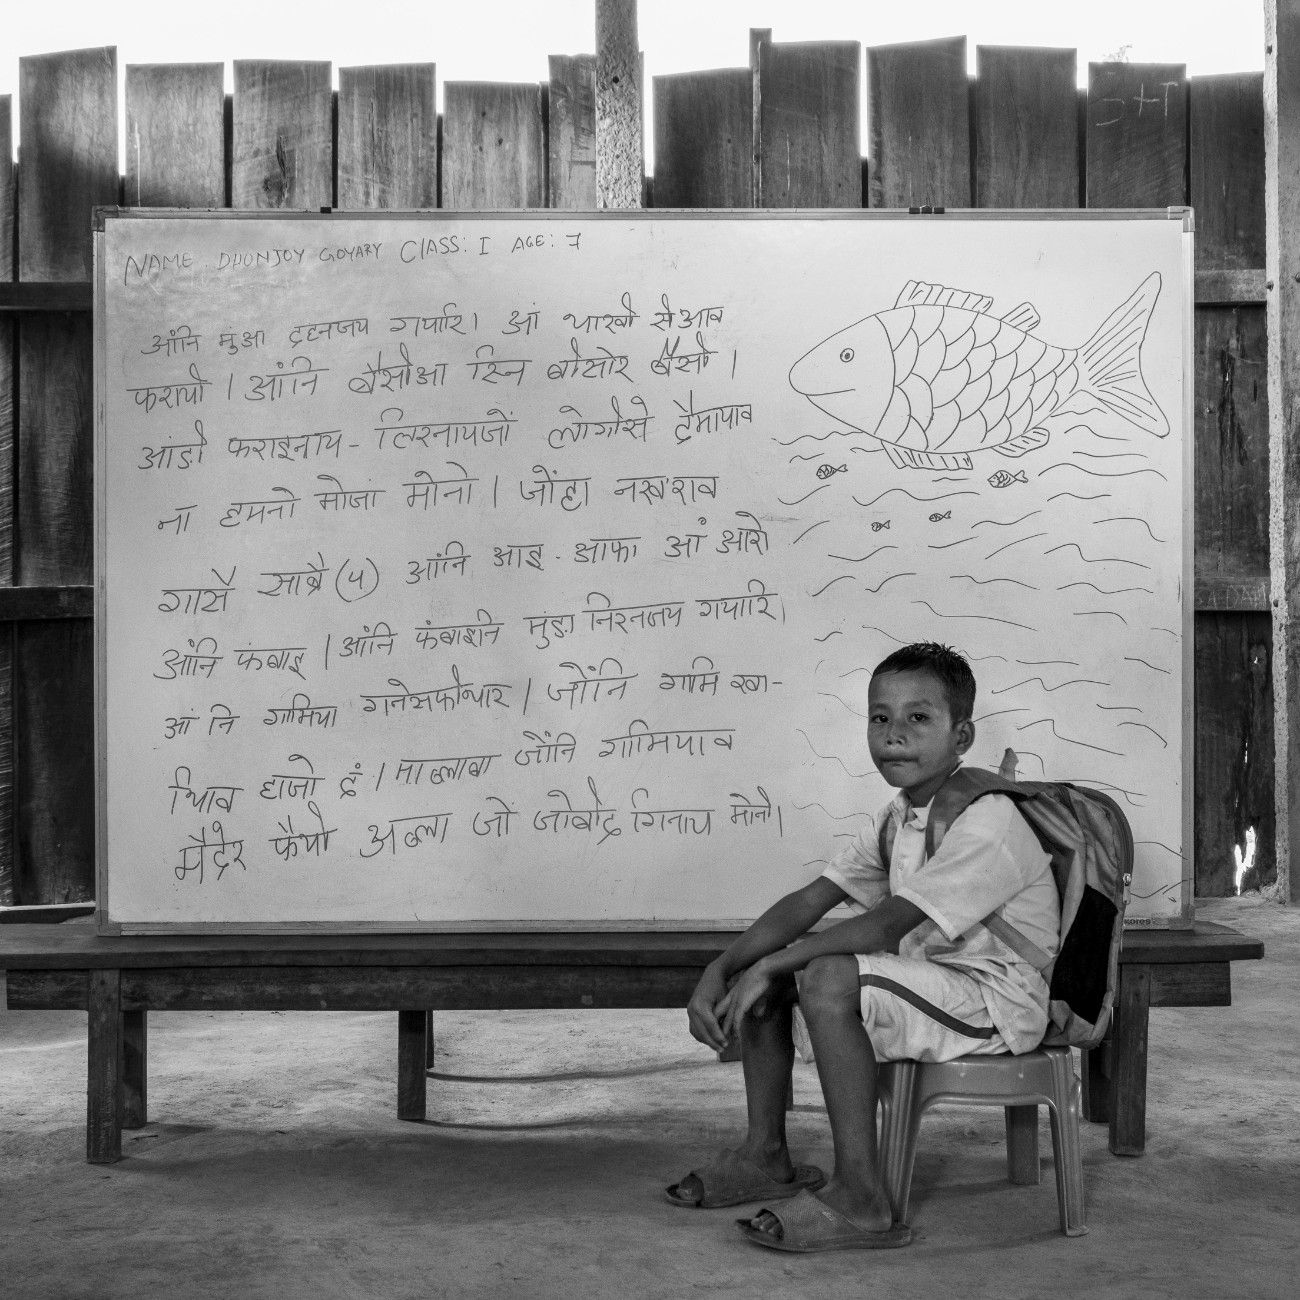 NAME. DHONJOY GOYARY CLASS: I AGE: 7
आंनि मुंआ द्रहनजय गयारि। आं थाखो से आव
फरायो। आंनि बैसोआ स्नि बोसोर बैसो।
आंङो फराइनाय - लिरनायजों लोगोसे दैमायाव
ना हमनो मोजां मोनो। जोंहा नख'राव
गासै साब्रै (५) आंनि आइ - आफा आं आरो
आंनि फंबाइ। आंनि फंबाइनि मुंङा निरनजय गयारि।
आं नि गामिया गनेसफोथार। जोंनि गामि खा-
थियाव हाजो दं। माब्लाबा जोंनि गामियाव
मैदेर फैयो अब्ला जों जोबोद गिनाय मोनो।
kores